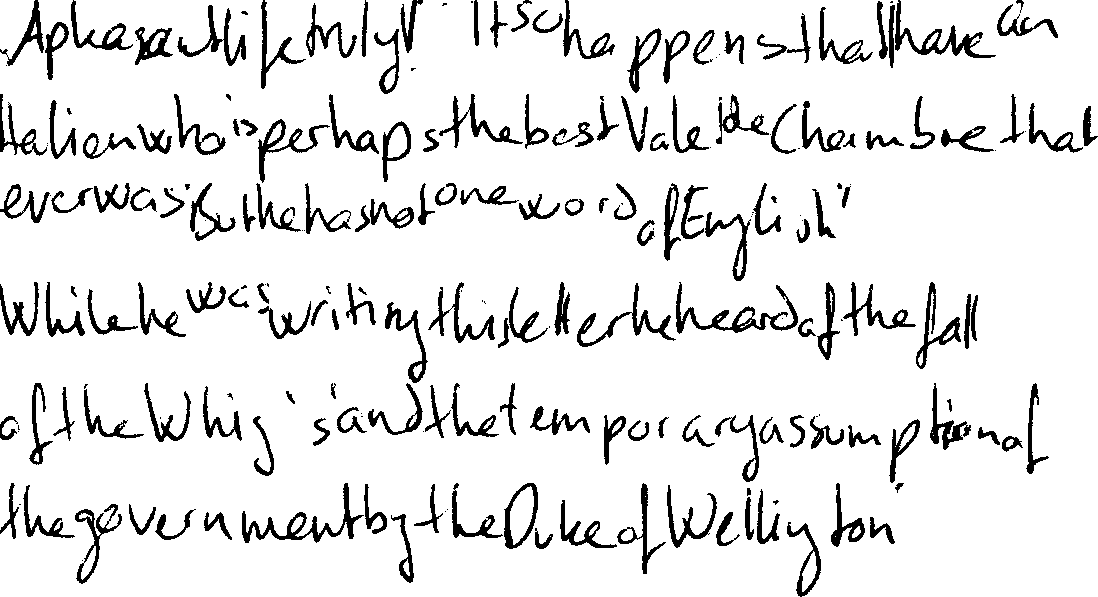 A pleasant life truly! It so happens that I have an
Italien who is perhaps the best Valet de Chambre that
ever was. But he has not one word of English"
While he was writing this letter he heard of the fall
of the Whig's and the temporary assumption of
the government by the Duke of Wellington